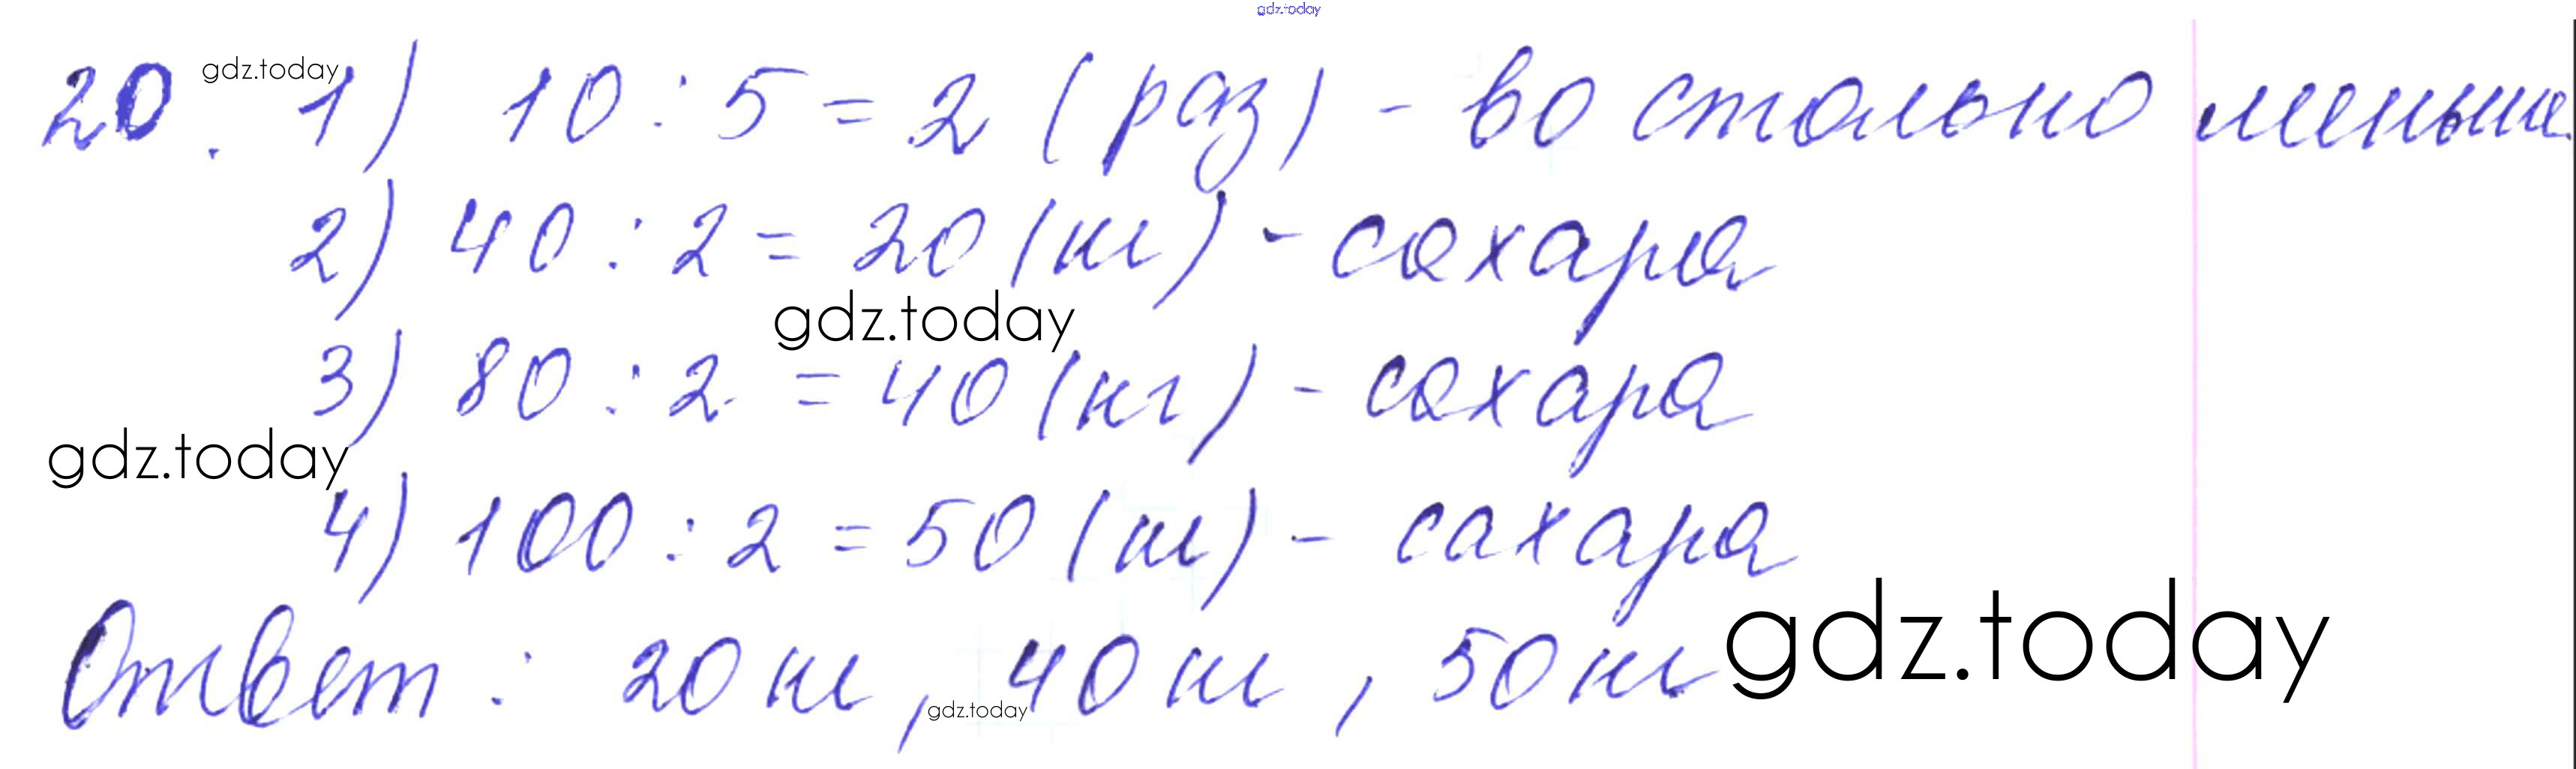 gdz.today
20. gdz.today 1) 10 : 5 = 2 (раз) - во столько меньше
2) 40 : 2 = 20 (кг) - сахара
gdz.today
3) 80 : 2 = 40 (кг) - сахара
gdz.today
4) 100 : 2 = 50 (кг) - сахара
gdz.today
Ответ : 20 кг, 40 кг, 50 кг
gdz.today